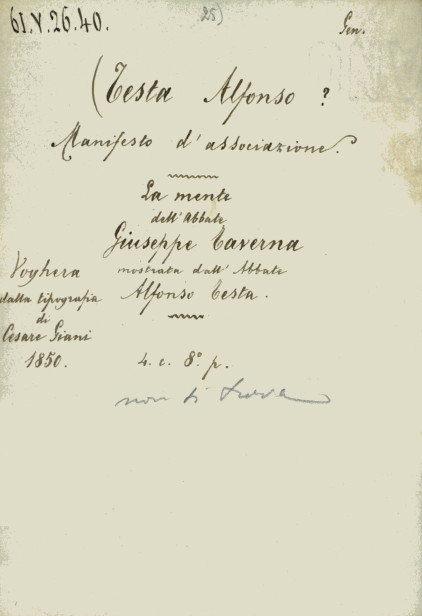 61.V.26.40.
25)
Gen.
(Testa Alfonso ?
Manifesto d'associazione.
La mente
dell'Abbate
Giuseppe Taverna
mostrata dall'Abbate
Alfonso Testa.
Voghera
dalla tipografia
di
Cesare Giani
1850.
4. c. 8.° p.
non si trova